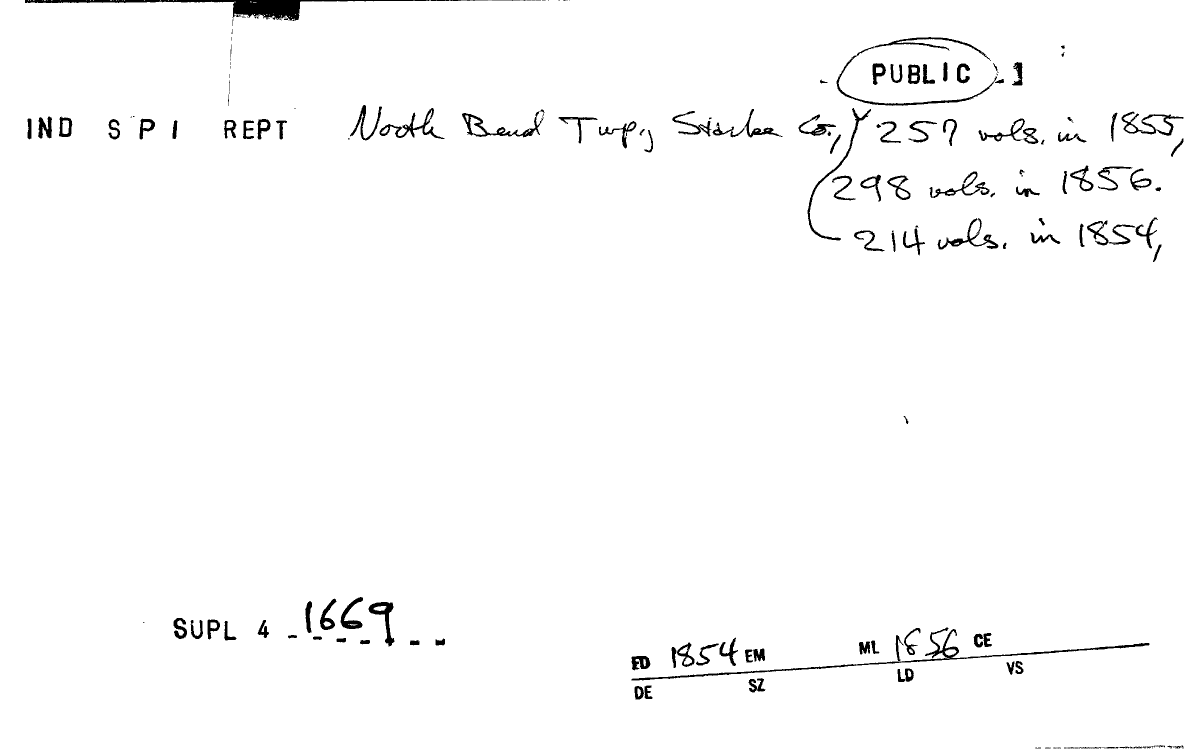 PUBLIC
IND S P I REPT North Bend Twp, Starke Co., 257 vols. in 1855,
298 vols. in 1856.
214 vols. in 1854,
SUPL 4 1669
ED 1854 EM ML 1856 CE
DE SZ LD VS